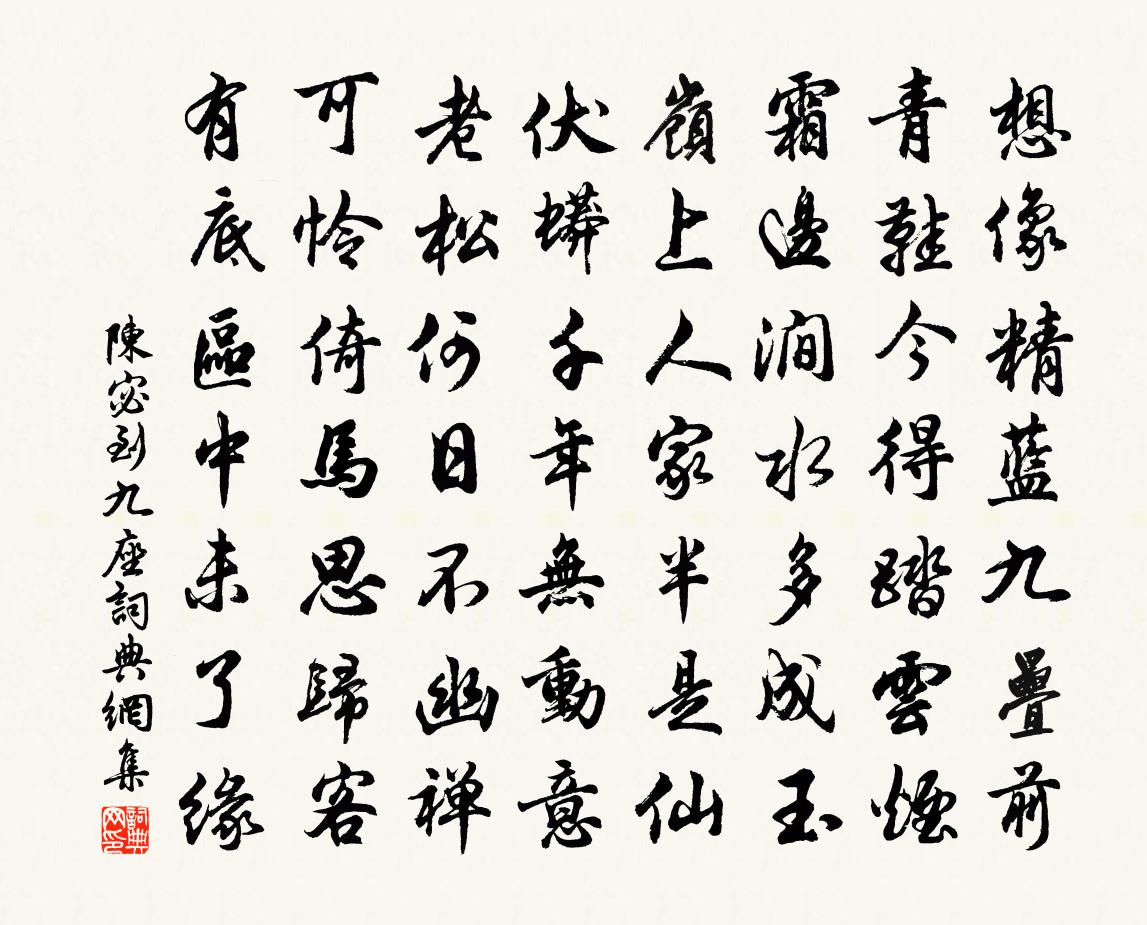 想像精藍九疊前
青鞋今得踏雲煙
霜邊澗水多成玉
嶺上人家半是仙
伏蟒千年無動意
老松何日不幽禅
可怜倚馬思歸客
有底區中未了緣
陳宓到九座詞典網集
詞典网印